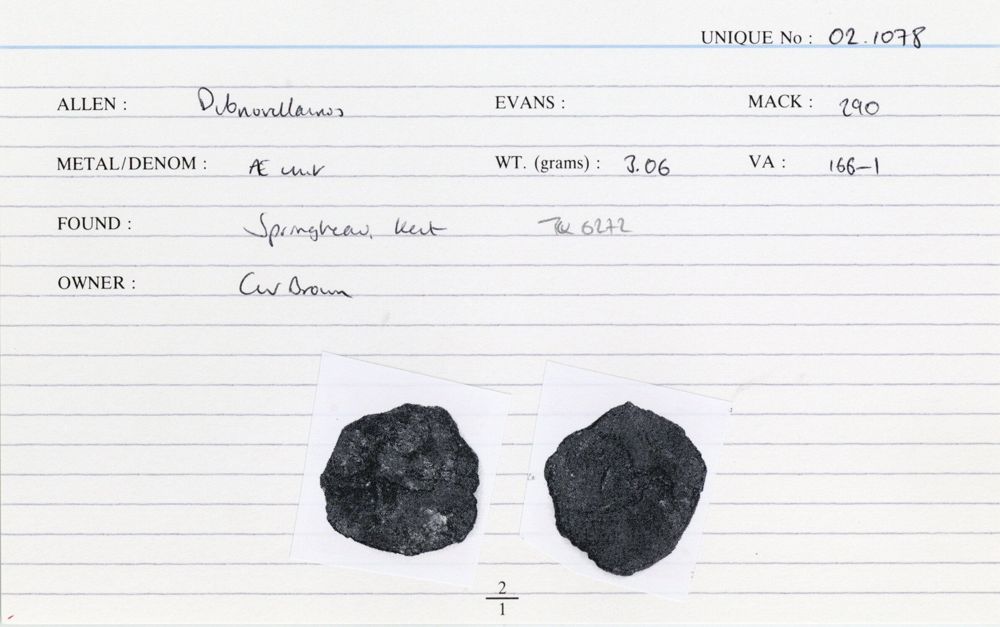 UNIQUE No : 02.1078
ALLEN : Dubnovellaunos EVANS : MACK : 290
METAL/DENOM : Æ unit WT. (grams) : 3.06 VA : 166-1
FOUND : Springhead, Kent TQ 6272
OWNER : CW Brown
2
1